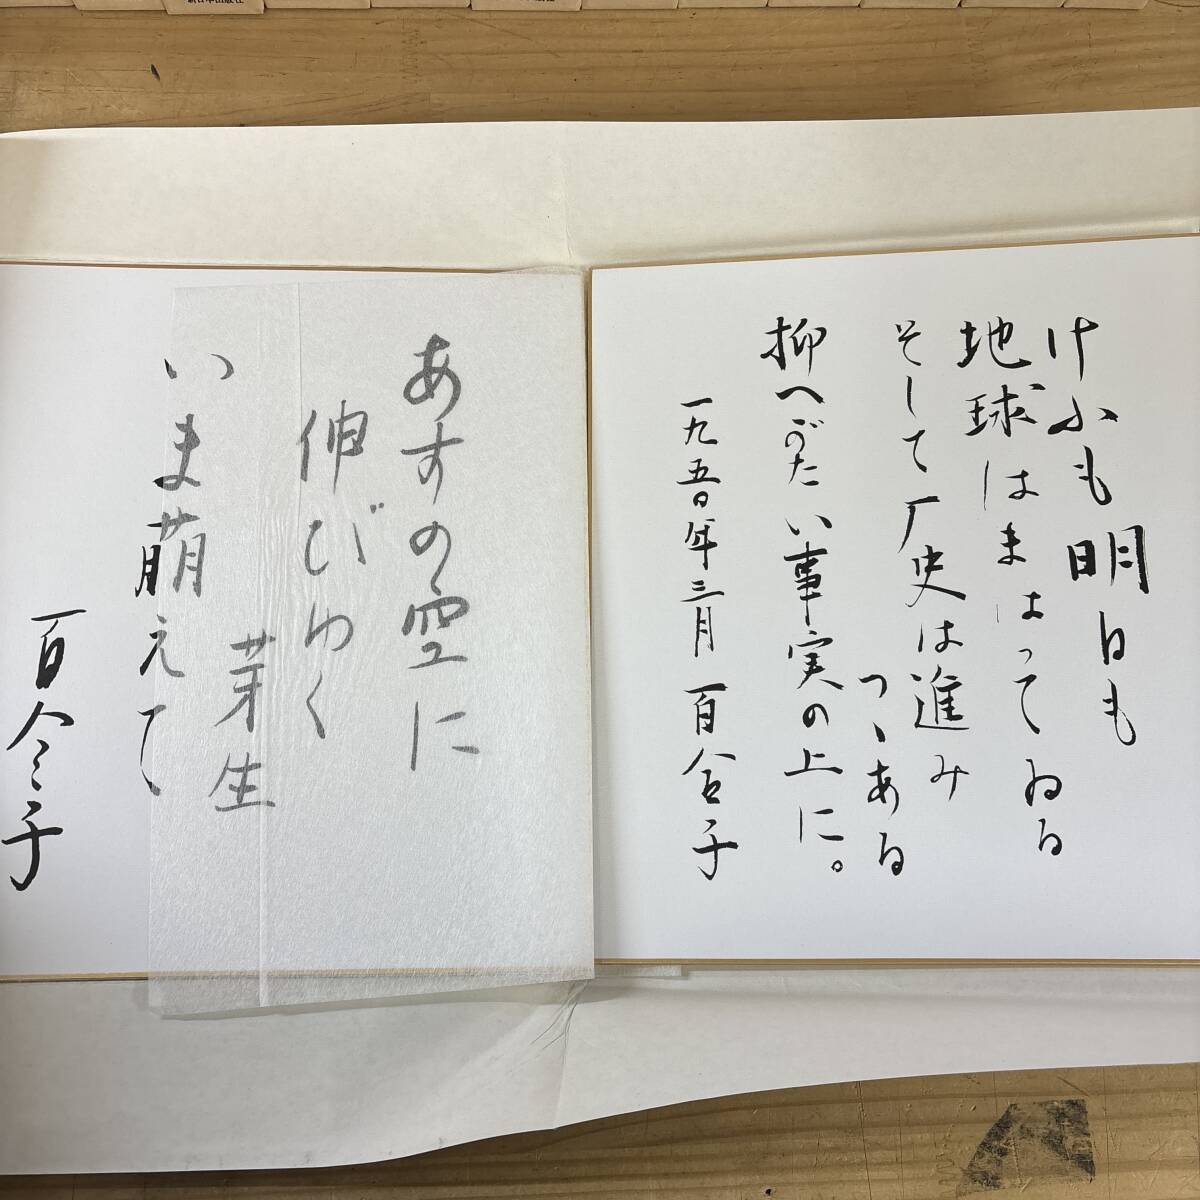 新日本出版社
けふも明日も
地球はまはってゐる
そして厂史は進み
つゝある
抑へがたい事実の上に。
一九五〇年三月 百合子
あすの空に
伸びゆく
芽生
いま萌えて
百合子